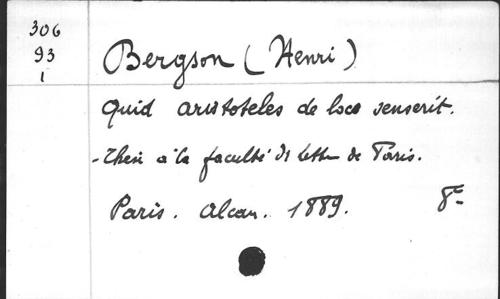 306
93
1
Bergson (Henri)
Quid aristoteles de loco senserit.
- Thèse à la faculté ds lettr de Paris.
Paris. Alcan. 1889. 8º